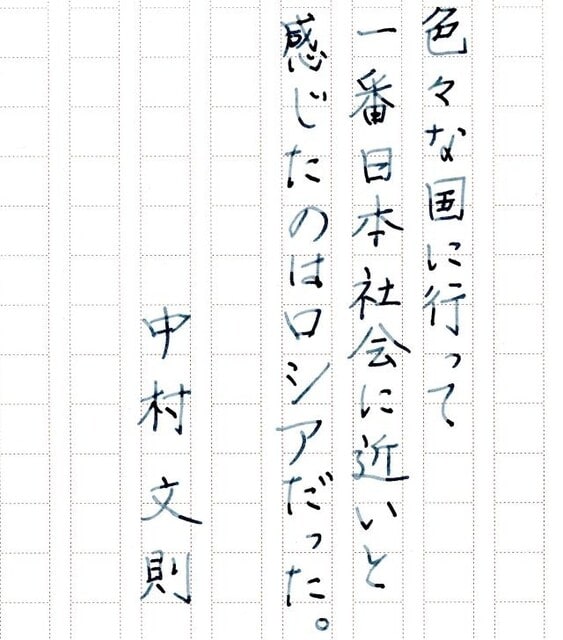 色々な国に行って
一番日本社会に近いと
感じたのはロシアだった。
中村文則